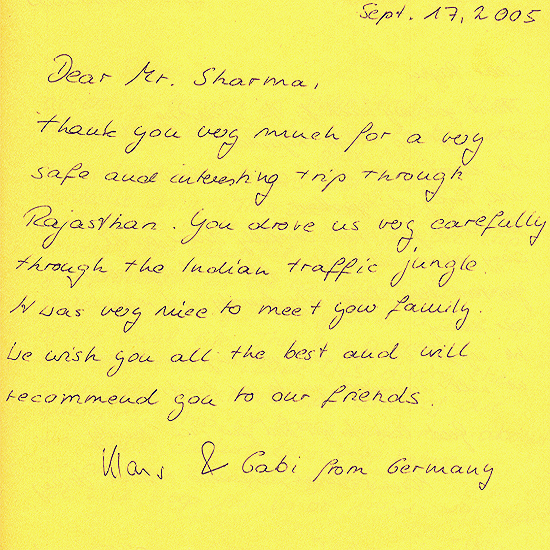 Sept. 17, 2005
Dear Mr. Sharma,
thank you very much for a very
safe and interesting trip through
Rajasthan. You drove us very carefully
through the Indian traffic jungle.
It was very nice to meet your family.
We wish you all the best and will
recommend you to our friends.
Klaus & Gabi from Germany